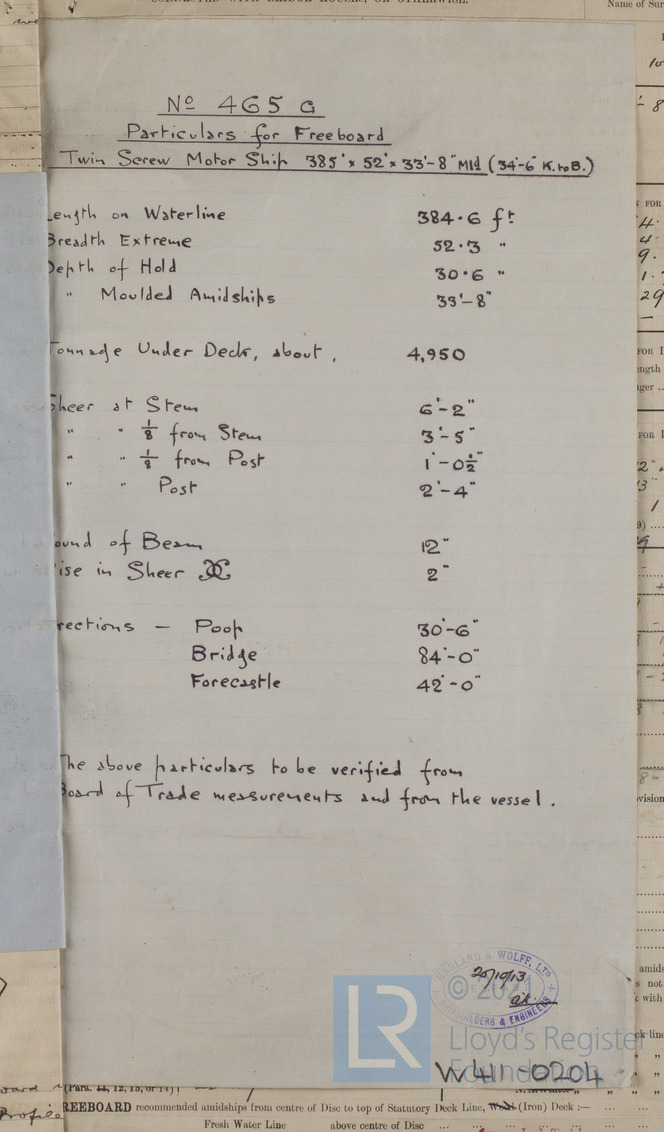 CONNECTED WITH BRIDGE HOUSES, OR OTHERWISE.
Name of Sur
Nº 465 G
Particulars for Freeboard
Twin Screw Motor Ship 385' × 52' × 33'-8" Mld (34'-6" K. to B.)
Length on Waterline 384·6 ft
Breadth Extreme 52·3 "
Depth of Hold 30·6 "
" Moulded Amidships 33'-8"
Tonnage Under Deck, about, 4,950
Sheer at Stem 6'-2"
" " 1/8 from Stem 3'-5"
" " 1/8 from Post 1'-0½"
" " Post 2'-4"
ound of Beam 12"
ise in Sheer 2"
rections — Poop 30'-6"
Bridge 84'-0"
Forecastle 42'-0"
The above particulars to be verified from
Board of Trade measurements and from the vessel.
HARLAND & WOLFF, LTD
20/10/13
SHIPBUILDERS & ENGINEERS
© 2021
LR
Lloyd's Register
Foundation
W411-0204
(Para. 11, 12, 13, or 14)
Profile
REEBOARD recommended amidships from centre of Disc to top of Statutory Deck Line, Wood (Iron) Deck :—
Fresh Water Line above centre of Disc ... ... ... ...